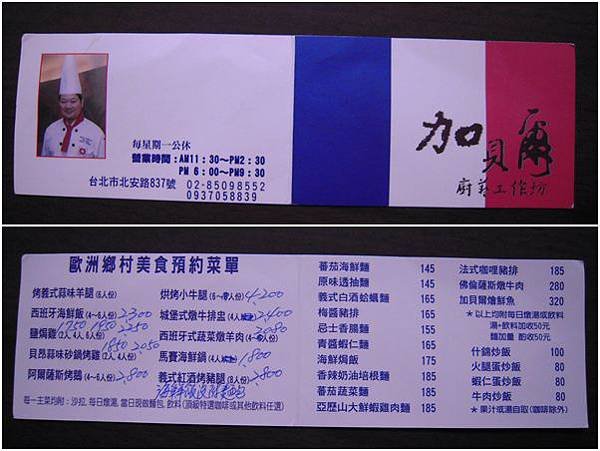 每星期一公休
營業時間:AM11:30~PM2:30
PM 6:00~PM9:30
台北市北安路837號 02-85098552
0937058839
加貝爾
廚藝工作坊
歐洲鄉村美食預約菜單
烤義式蒜味羊腿(6人份)
西班牙海鮮飯(4~6人份) 2300
1750 1950 2250
鹽焗雞(2人 4人 6人份)
1850 2050
貝昂蒜味砂鍋烤雞(2人,4人份)
阿爾薩斯烤鵝(4~6人份) 2,800
烘烤小牛腿(6~8人份) 4,200
城堡式燉牛排盅(4人份) 2,400
西班牙式蔬菜燉羊肉(4~8人份) 2080
馬賽海鮮鍋(4人份) 1,800
義式紅酒烤豬腿(8人份) 2,800
每一主菜均附:沙拉,每日燉湯,當日現做麵包,飲料(頂級特選咖啡或其他飲料任選)
番茄海鮮麵 145
原味透抽麵 145
義式白酒蛤蠣麵 165
梅醬豬排 165
忌士香腸麵 155
青醬蝦仁麵 165
海鮮焗飯 175
香辣奶油培根麵 185
番茄蔬菜麵 185
亞歷山大鮮蝦雞肉麵 185
法式咖哩豬排 185
佛倫斯燉牛肉 280
加貝爾燉鮮魚 320
*以上均附每日燉湯或飲料
湯+飲料加收50元
麵加量 酌收50元
什錦炒飯 100
火腿蛋炒飯 80
蝦仁蛋炒飯 80
牛肉炒飯 80
*果汁或湯自取(咖啡除外)